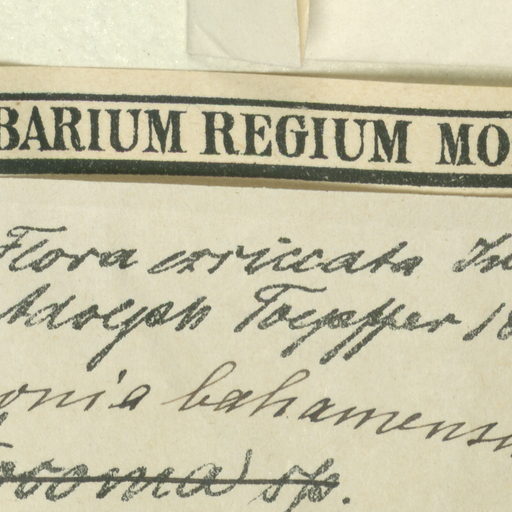 BARIUM REGIUM MO
Flora exsiccata In
Adolph Toepffer 18
onia bahamensi
Tecoma sp.